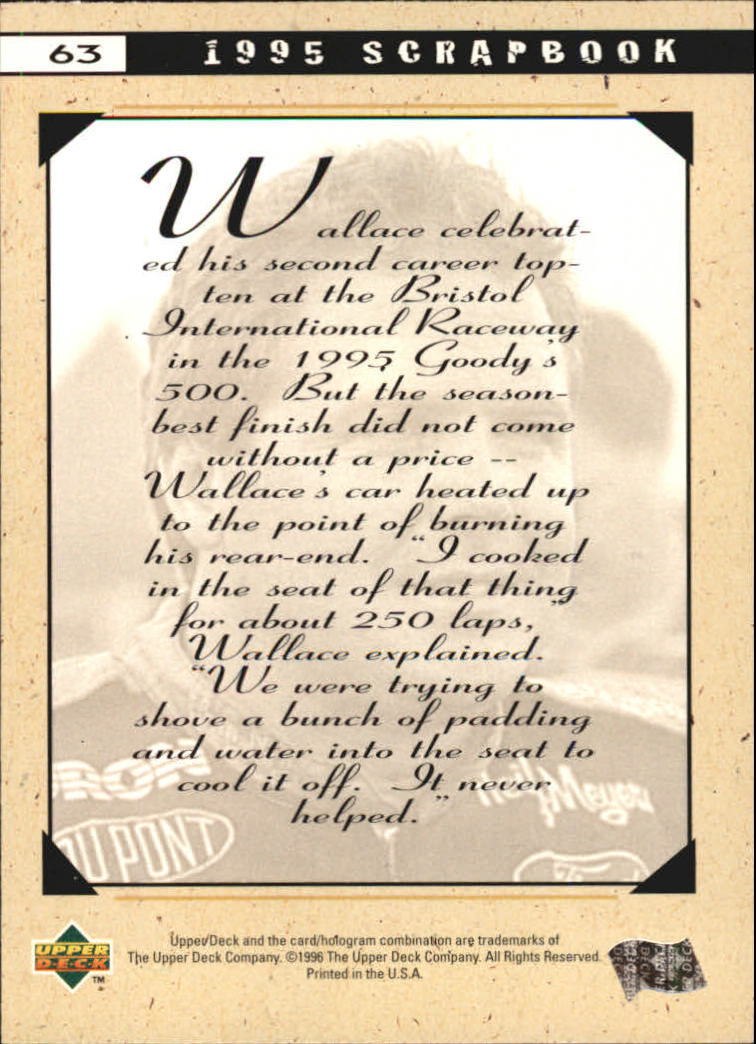 63 1995 SCRAPBOOK
Wallace celebrat-
ed his second career top-
ten at the Bristol
International Raceway
in the 1995 Goody's
500. But the season-
best finish did not come
without a price --
Wallace's car heated up
to the point of burning
his rear-end. "I cooked
in the seat of that thing
for about 250 laps,"
Wallace explained.
"We were trying to
shove a bunch of padding
and water into the seat to
cool it off. It never
helped."
DUPONT
UPPER
DECK
TM
Upper Deck and the card/hologram combination are trademarks of
The Upper Deck Company. ©1996 The Upper Deck Company. All Rights Reserved.
Printed in the U.S.A.